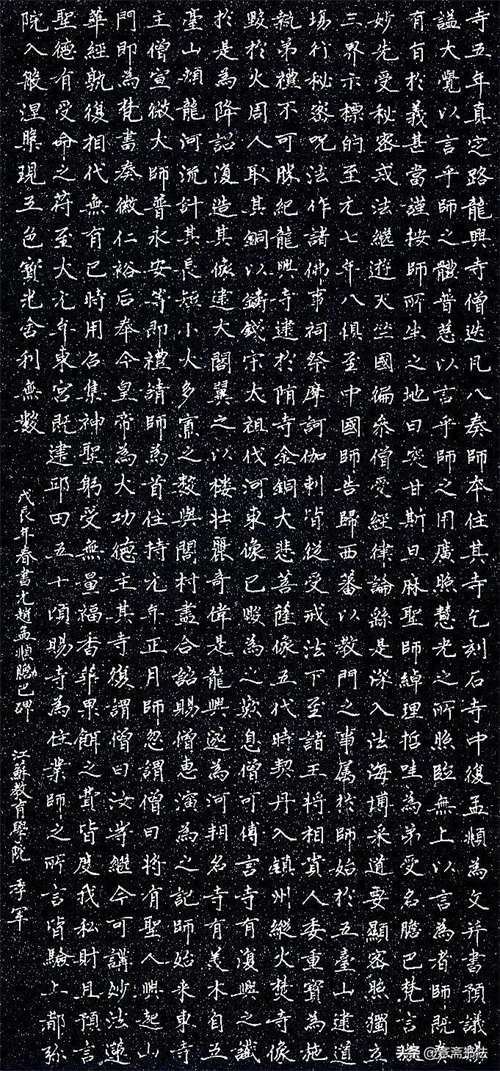 寺五年真定路龍興寺僧迭凡八奏師本住其寺乞刻石寺中復孟頫為文并書預議賜
謚大覺以言乎師之體普慈以言乎師之用廣照慧光之所照臨無上以言為者師既奏
有旨於義甚當謹按師所生之地曰突甘斯旦麻聖師綽理哲哇為弟受名膽巴梵言微
妙先受秘密戒法繼遊天竺國徧參僧受經律論繇是深入法海博采道要顯密照獨立
三界示標的至元七年八俱至中國師告歸西蕃以教門之事属於師始於五臺山建道
場行秘密呪法作諸佛事祠祭摩訶伽剌皆從受戒法下至諸王将相貴人委重寶為施
執弟禮不可勝紀龍興寺建於隋寺金銅大悲菩薩像五代時契丹入鎮州縱火焚寺像
毀於火周人取其銅以鑄錢宋太祖伐河東像已毀為之歎息僧可傳言寺有復興之讖
於是為降詔復造其像建大閣翼之以樓壯麗奇偉是龍興遂為河朔名寺有美木自五
臺山頰龍河流計其長短小大多寡之數與閣材盡合詔賜僧惠演為之記師始来東寺
主僧宣微大師普永安等即禮請師為首住持元年正月師忽謂僧曰将有聖人興起山
門即為梵書奏徽仁裕后奉今皇帝為大功德主其寺復謂僧曰汝等継今可講妙法蓮
華經孰復相代無有已時用召集神聖躬受無量福香華果餌之費皆度我私財且預言
聖德有受命之符至大元年東宫既建邸田五十頃賜寺為住業師之所言皆驗上都弥
院入般涅槃現五色寶光舍利無數
戊辰年春書元趙孟頫膽巴碑 江蘇教育學院 季軍
头条@壹斋书法